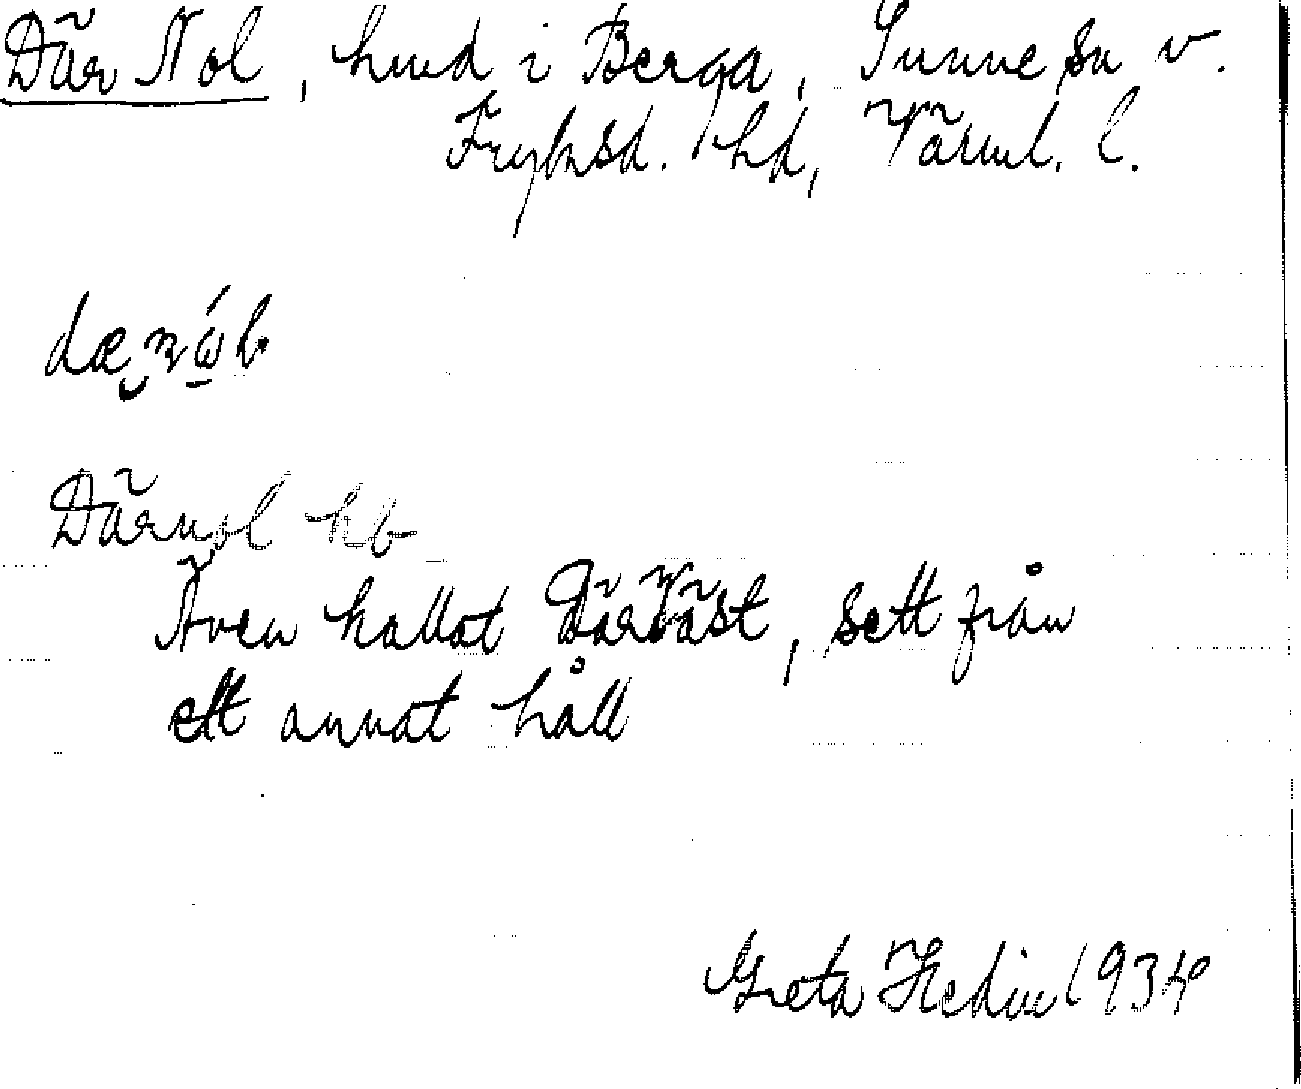 Där Nol, hmd i Berga, Sunne sn v.
Fryksd. hd, Värml. l.
Därnol hb
Även kallat Därväst, sett från
ett annat håll
Greta Hedin 1934